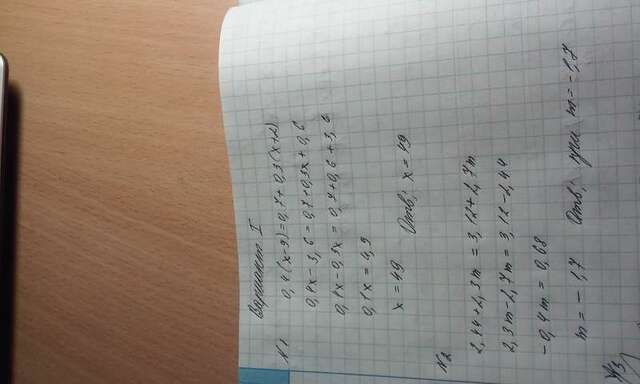 Вариант I
№1
0,4(x-9)=0,7+0,3(x+2)
0,4x-3,6=0,7+0,3x+0,6
0,4x-0,3x=0,7+0,6+3,6
0,1x=4,9
x=49 Отв; x=49
№2
2,44+2,3m=3,12+2,7m
2,3m-2,7m=3,12-2,44
-0,4m=0,68
m=-1,7 Отв; при m=-1,7
№3